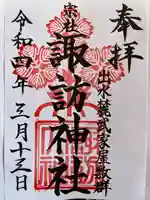 奉拝
出水麓武家屋敷群
宗社
諏訪神社
令和四年三月十三日